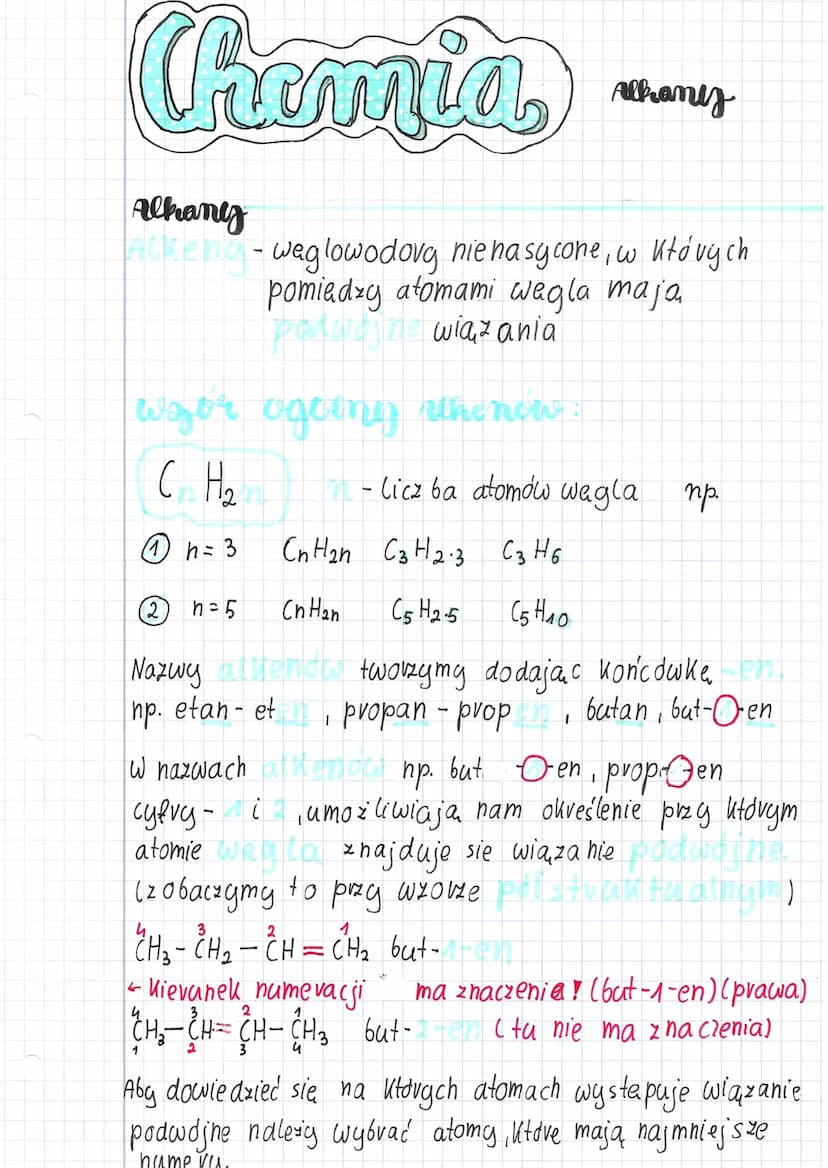 Chemia
Alkany
Alkany
Alkeny - węglowodory nienasycone, w których
pomiędzy atomami węgla mają
podwójne wiązania
wzór ogólny alkenów:
CnH2n n - liczba atomów węgla np.
① n = 3 CnH2n C3H2·3 C3H6
② n = 5 CnH2n C5H2·5 C5H10
Nazwy alkenów tworzymy dodając końcówkę -en.
np. etan - eten, propan - propen, butan, but-1-en
W nazwach alkenów np. but -1-en, prop-2-en
cyfry - 1 i 2, umożliwiają nam określenie przy którym
atomie węgla znajduje się wiązanie podwójne.
(zobaczymy to przy wzorze półstrukturalnym)
4 3 2 1
CH3 - CH2 - CH = CH2 but-1-en
← kierunek numeracji ma znaczenie! (but-1-en) (prawa)
4 3 2 1
CH3 - CH = CH - CH3 but-2-en (tu nie ma znaczenia)
1 2 3 4
Aby dowiedzieć się na których atomach występuje wiązanie
podwójne należy wybrać atomy, które mają najmniejsze
numery.